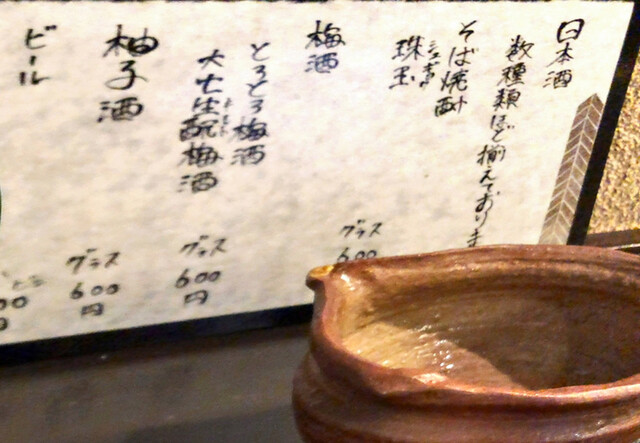 日本酒
数種類ほど揃えております
そば焼酎
珠玉
梅酒
グラス
600
とろとろ梅酒
大七生酛梅酒
グラス
600
円
柚子酒
グラス
600
円
ビール
00
円